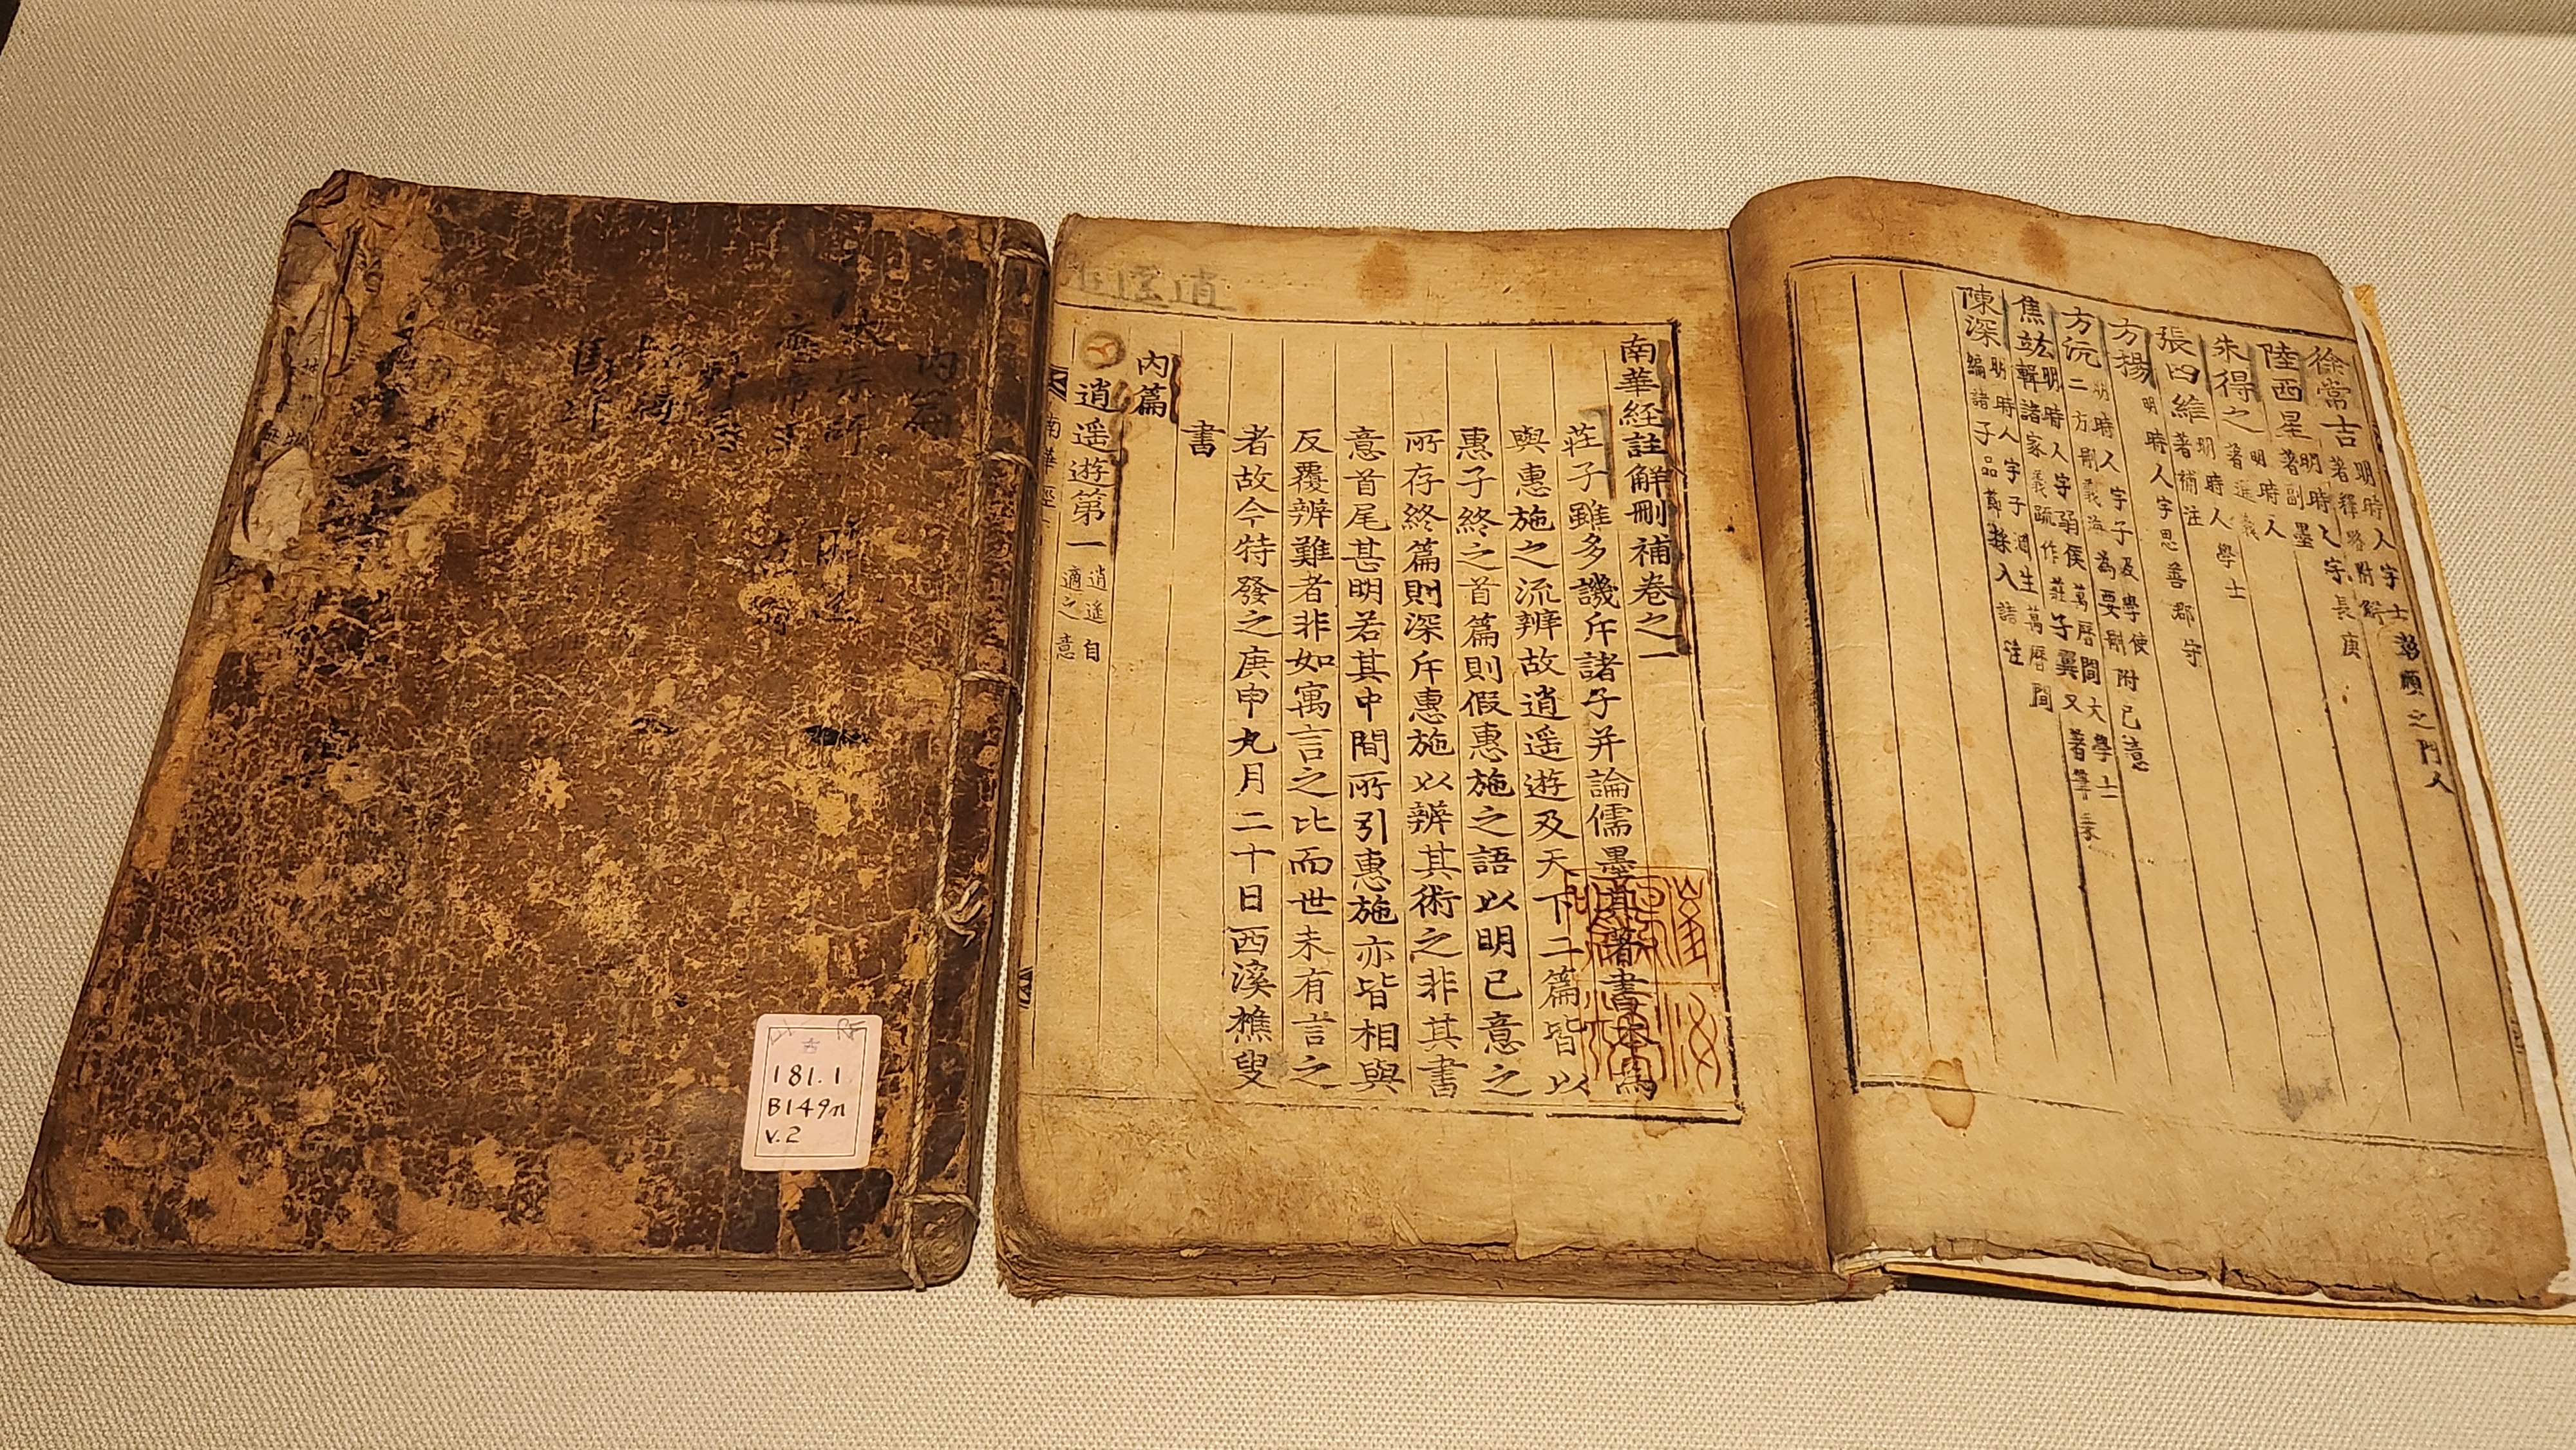 徐常吉 明時人字士彰顧之門人 著釋略附解
陸西星 明時人字長庚 著副墨
朱得之 明時人 著通義
張四維 明時人學士 著補注
方揚 明時人字思善郡守
方沆 明時人字子及學使 二方刪義海為要刪附己意
焦竑 明時人字弱侯萬曆間大學士 輯諸家義疏作莊子翼又著筆乘
陳深 明時人字子淵生萬曆間 編諸子品節採入諸注
南華經註解刪補卷之一
莊子雖多譏斥諸子并論儒墨其著書本為
與惠施之流辨故逍遥遊及天下二篇皆以
惠子終之首篇則假惠施之語以明己意之
所存終篇則深斥惠施以辨其術之非其書
意首尾甚明若其中間所引惠施亦皆相與
反覆辨難者非如寓言之比而世未有言之
者故今特發之庚申九月二十日西溪樵叟
書
內篇
逍遥遊第一 逍遥自適之意
南華經一
內篇
大宗師
應帝王
181.1
B149n
v.2